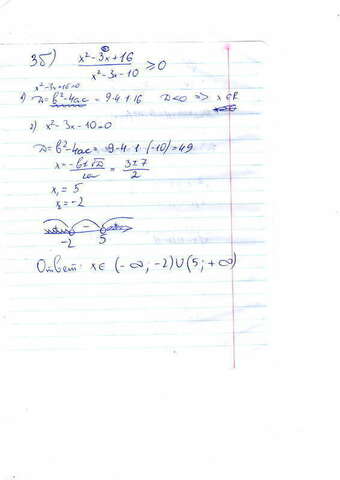 3б) x² - 3x + 16 / x² - 3x - 10 ≥ 0
x² - 3x + 16 = 0
1) D = b² - 4ac = 9 - 4·1·16 D < 0 => x ∈ R
2) x² - 3x - 10 = 0
D = b² - 4ac = 9 - 4·1·(-10) = 49
x = -b ± √D / 2a = 3 ± 7 / 2
x₁ = 5
x₂ = -2
-
-2 5
Ответ: x ∈ (-∞; -2) ∪ (5; +∞)